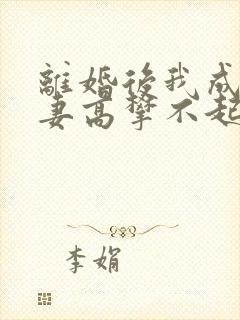 離婚後我成
妻高攀不起
李娟